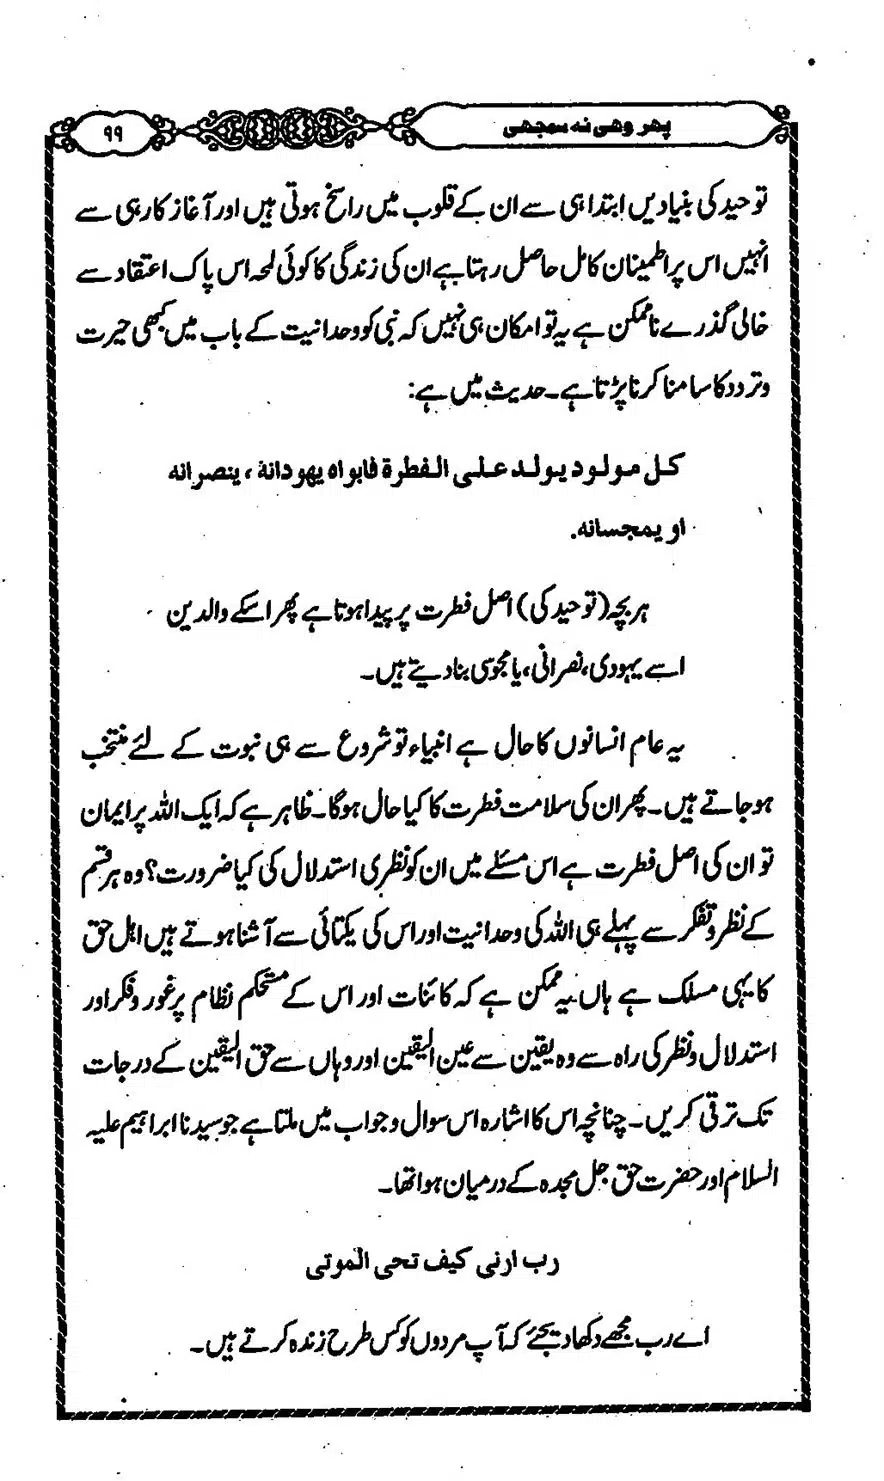 پھر وھی نہ سمجھی
۹۹
توحید کی بنیادیں ابتدا ہی سے ان کے قلوب میں راسخ ہوتی ہیں اور آغاز کار ہی سے
انہیں اس پر اطمینان کامل حاصل رہتا ہے ان کی زندگی کا کوئی لمحہ اس پاک اعتقاد سے
خالی گذرے ناممکن ہے یہ تو امکان ہی نہیں کہ نبی کو وحدانیت کے باب میں کبھی حیرت
و تردد کا سامنا کرنا پڑتا ہے۔ حدیث میں ہے:
کل مولود یولد علی الفطرة فابواہ یھودانہ ، ینصرانہ
او یمجسانہ.
ہر بچہ (توحید کی) اصل فطرت پر پیدا ہوتا ہے پھر اسکے والدین
اسے یہودی، نصرانی، یا مجوسی بنا دیتے ہیں۔
یہ عام انسانوں کا حال ہے انبیاء تو شروع سے ہی نبوت کے لئے منتخب
ہو جاتے ہیں۔ پھر ان کی سلامت فطرت کا کیا حال ہوگا۔ ظاہر ہے کہ ایک اللہ پر ایمان
تو ان کی اصل فطرت ہے اس مسئلے میں ان کو نظری استدلال کی کیا ضرورت؟ وہ ہر قسم
کے نظر و تفکر سے پہلے ہی اللہ کی وحدانیت اور اس کی یکتائی سے آشنا ہوتے ہیں اہل حق
کا یہی مسلک ہے ہاں یہ ممکن ہے کہ کائنات اور اس کے مستحکم نظام پر غور و فکر اور
استدلال و نظر کی راہ سے وہ یقین سے عین الیقین اور وہاں سے حق الیقین کے درجات
تک ترقی کریں۔ چنانچہ اس کا اشارہ اس سوال و جواب میں ملتا ہے جو سیدنا ابراہیم علیہ
السلام اور حضرت حق جل مجدہ کے درمیان ہوا تھا۔
رب ارنی کیف تحی الموتی
اے رب مجھے دکھا دیجئے کہ آپ مردوں کو کس طرح زندہ کرتے ہیں۔